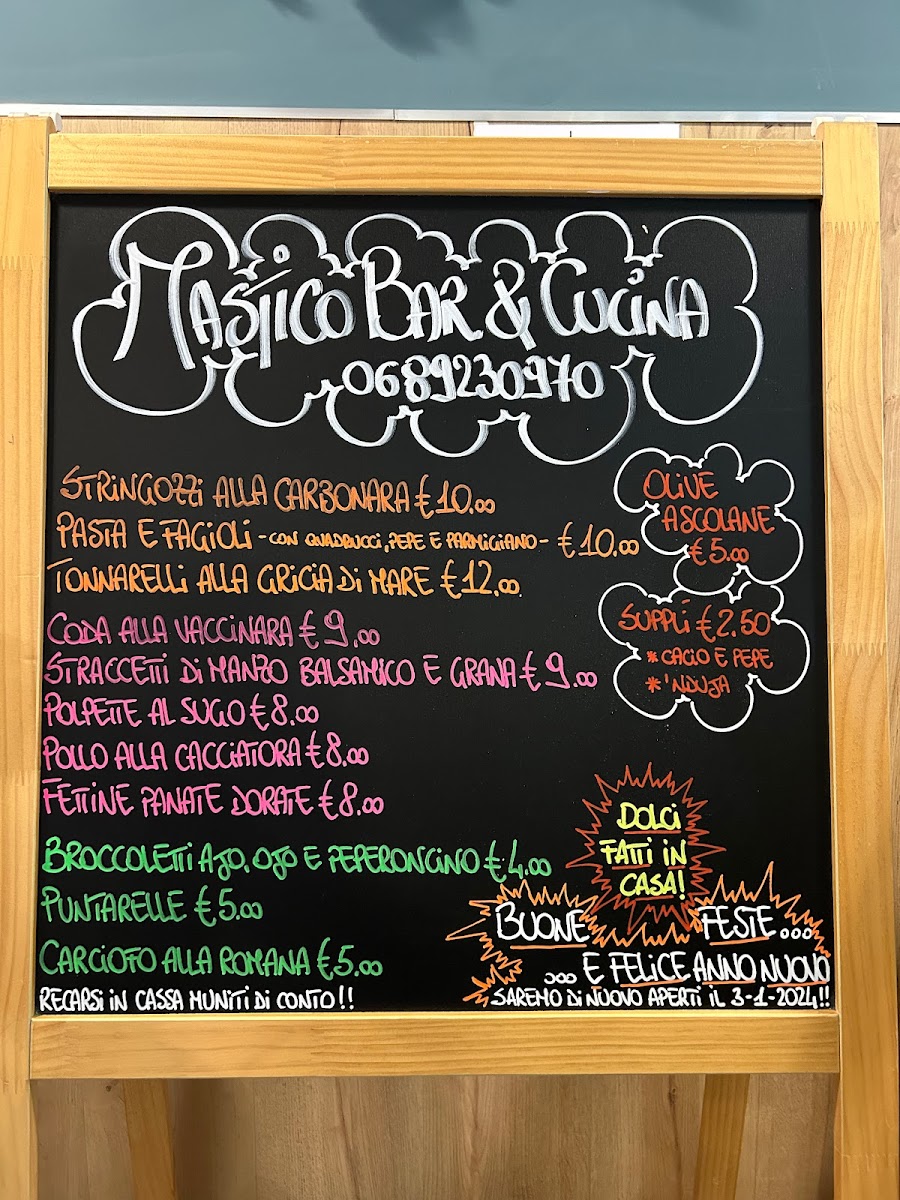 MASTICO BAR & CUCINA
0689230970
STRINGOZZI ALLA CARBONARA €10.00
PASTA E FAGIOLI - CON QUADRUCCI, PEPE E PARMIGIANO - €10.00
TONNARELLI ALLA GRICIA DI MARE €12.00
OLIVE
ASCOLANE
€5.00
SUPPLÌ €2.50
* CACIO E PEPE
* 'NDUJA
CODA ALLA VACCINARA €9.00
STRACCETTI DI MANZO BALSAMICO E GRANA €9.00
POLPETTE AL SUGO €8.00
POLLO ALLA CACCIATORA €8.00
FETTINE PANATE DORATE €8.00
BROCCOLETTI AJO, OJO E PEPERONCINO €4.00
PUNTARELLE €5.00
CARCIOFO ALLA ROMANA €5.00
RECARSI IN CASSA MUNITI DI CONTO!!
DOLCI
FATTI IN
CASA!
BUONE FESTE...
... E FELICE ANNO NUOVO
SAREMO DI NUOVO APERTI IL 3-1-2024!!